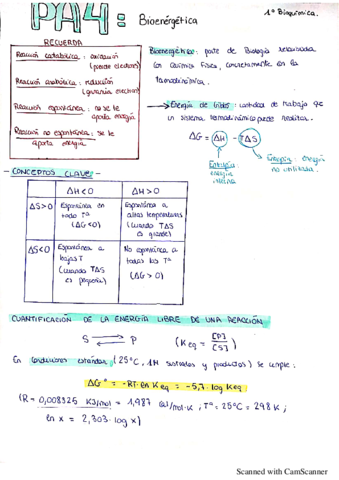 PA4: Bioenérgética
1º Bioquímica.
RECUERDA
Reacción catabólica: oxidación
(pierde electrones)
Reacción anabólica: reducción
(gana electrones)
Reacción espontánea: no se le
aporta energía
Reacción no espontánea: se le
aporta energía
Bioenergética: parte de Biología relacionada
con Química Física, concretamente en la
termodinámica.
Energía de Gibbs: cantidad de trabajo que
un sistema termodinámico puede realizar.
ΔG = ΔH - TΔS
Entalpía: energía interna
Entropía: energía no utilizada.
- CONCEPTOS CLAVE -
ΔH<0 ΔH>0
ΔS>0 Espontánea en todo Tª (ΔG<0)
Espontánea a altas temperaturas (cuando TΔS es grande)
ΔS<0 Espontánea a bajas T (cuando TΔS es pequeña)
No espontánea a todas las Tª (ΔG>0)
CUANTIFICACIÓN DE LA ENERGÍA LIBRE DE UNA REACCIÓN
S ⇌ P (Keq = [P]/[S])
En condiciones estándar (25°C, 1M sustratos y productos) se cumple:
ΔG° = -RT·ln Keq = -5,7·log Keq
(R = 0,008325 KJ/mol = 1,987 cal/mol·K; Tª = 25°C = 298 K;
ln x = 2,303·log x)
Scanned with CamScanner